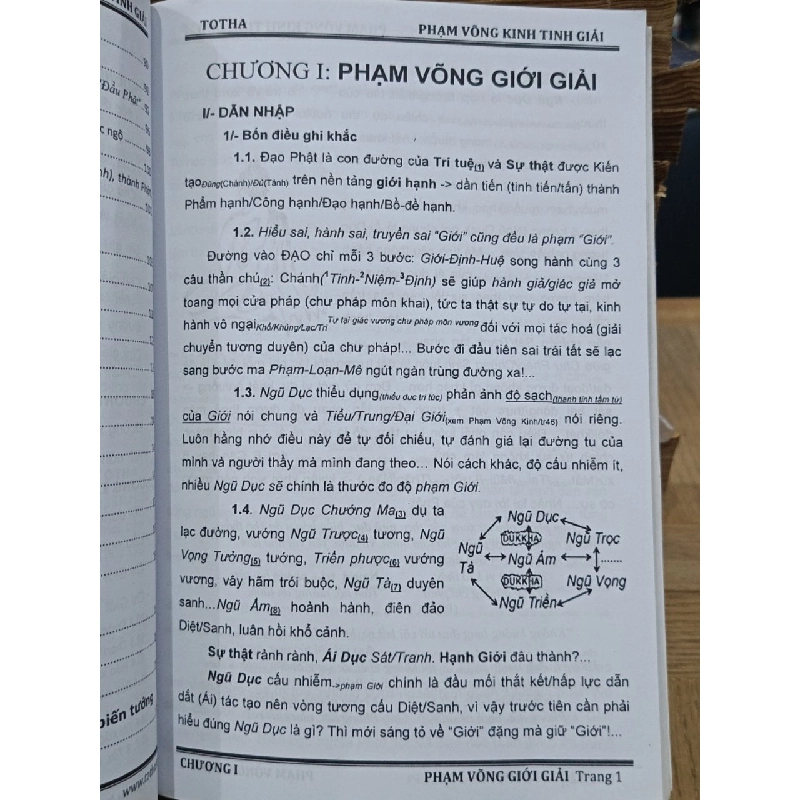 TOTHA PHẠM VÕNG KINH TINH GIẢI
CHƯƠNG I: PHẠM VÕNG GIỚI GIẢI
I/- DẪN NHẬP
1/- Bốn điều ghi khắc
1.1. Đạo Phật là con đường của Trí tuệ(1) và Sự thật được Kiến
tạoĐúng(Chánh)/Đủ(Tánh) trên nền tảng giới hạnh -> dần tiến (tinh tiến/tấn) thành
Phẩm hạnh/Công hạnh/Đạo hạnh/Bồ-đề hạnh.
1.2. Hiểu sai, hành sai, truyền sai "Giới" cũng đều là phạm "Giới".
Đường vào ĐẠO chỉ mỗi 3 bước: Giới-Định-Huệ song hành cùng 3
câu thần chú(2): Chánh(1Tinh-2Niệm-3Định) sẽ giúp hành giả/giác giả mở
toang mọi cửa pháp (chư pháp môn khai), tức ta thật sự tự do tự tại, kinh
hành vô ngạiKhổ/Khủng/Lạc/Trí Tự tại giác vương chư pháp môn vương đối với mọi tác hoá (giải
chuyển tương duyên) của chư pháp!... Bước đi đầu tiên sai trái tất sẽ lạc
sang bước ma Phạm-Loạn-Mê ngút ngàn trùng đường xa!...
1.3. Ngũ Dục thiểu dụng(thiểu dục tri túc) phản ảnh độ sạch(thanh tịnh tâm từ)
của Giới nói chung và Tiểu/Trung/Đại Giới(xem Phạm Võng Kinh/tr45) nói riêng.
Luôn hằng nhớ điều này để tự đối chiếu, tự đánh giá lại đường tu của
mình và người thầy mà mình đang theo... Nói cách khác, độ cấu nhiễm ít,
nhiều Ngũ Dục sẽ chính là thước đo độ phạm Giới.
1.4. Ngũ Dục Chướng Ma(3) dụ ta
lạc đường, vướng Ngũ Trược(4) tương, Ngũ
Vọng Tưởng(5) tướng, Triền phược(6) vướng
vương, vây hãm trói buộc, Ngũ Tà(7) duyên
sanh...Ngũ Ấm(8) hoành hành, điên đảo
Diệt/Sanh, luân hồi khổ cảnh.
Ngũ Dục
DUKKHA
Ngũ Trọc
Ngũ
Tà
Ngũ Ấm
.......
DUKKHA
Ngũ Vọng
Ngũ Triền
Sự thật rành rành, Ái Dục Sát/Tranh. Hạnh Giới đâu thành?...
Ngũ Dục cấu nhiễm->phạm Giới chính là đầu mối thắt kết/hấp lực dẫn
dắt (Ái) tác tạo nên vòng tương cấu Diệt/Sanh, vì vậy trước tiên cần phải
hiểu đúng Ngũ Dục là gì? Thì mới sáng tỏ về "Giới" đặng mà giữ "Giới"!...
CHƯƠNG I PHẠM VÕNG GIỚI GIẢI Trang 1
"Đầu Phà"
c ngộ
biến tướng